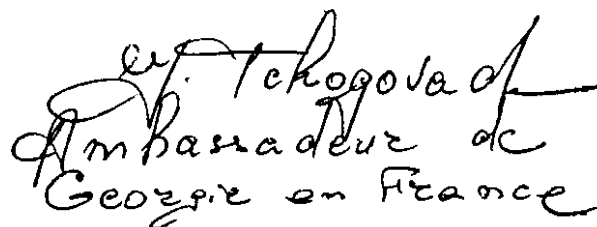 Tchogovad
Ambassadeur de
Georgie en France